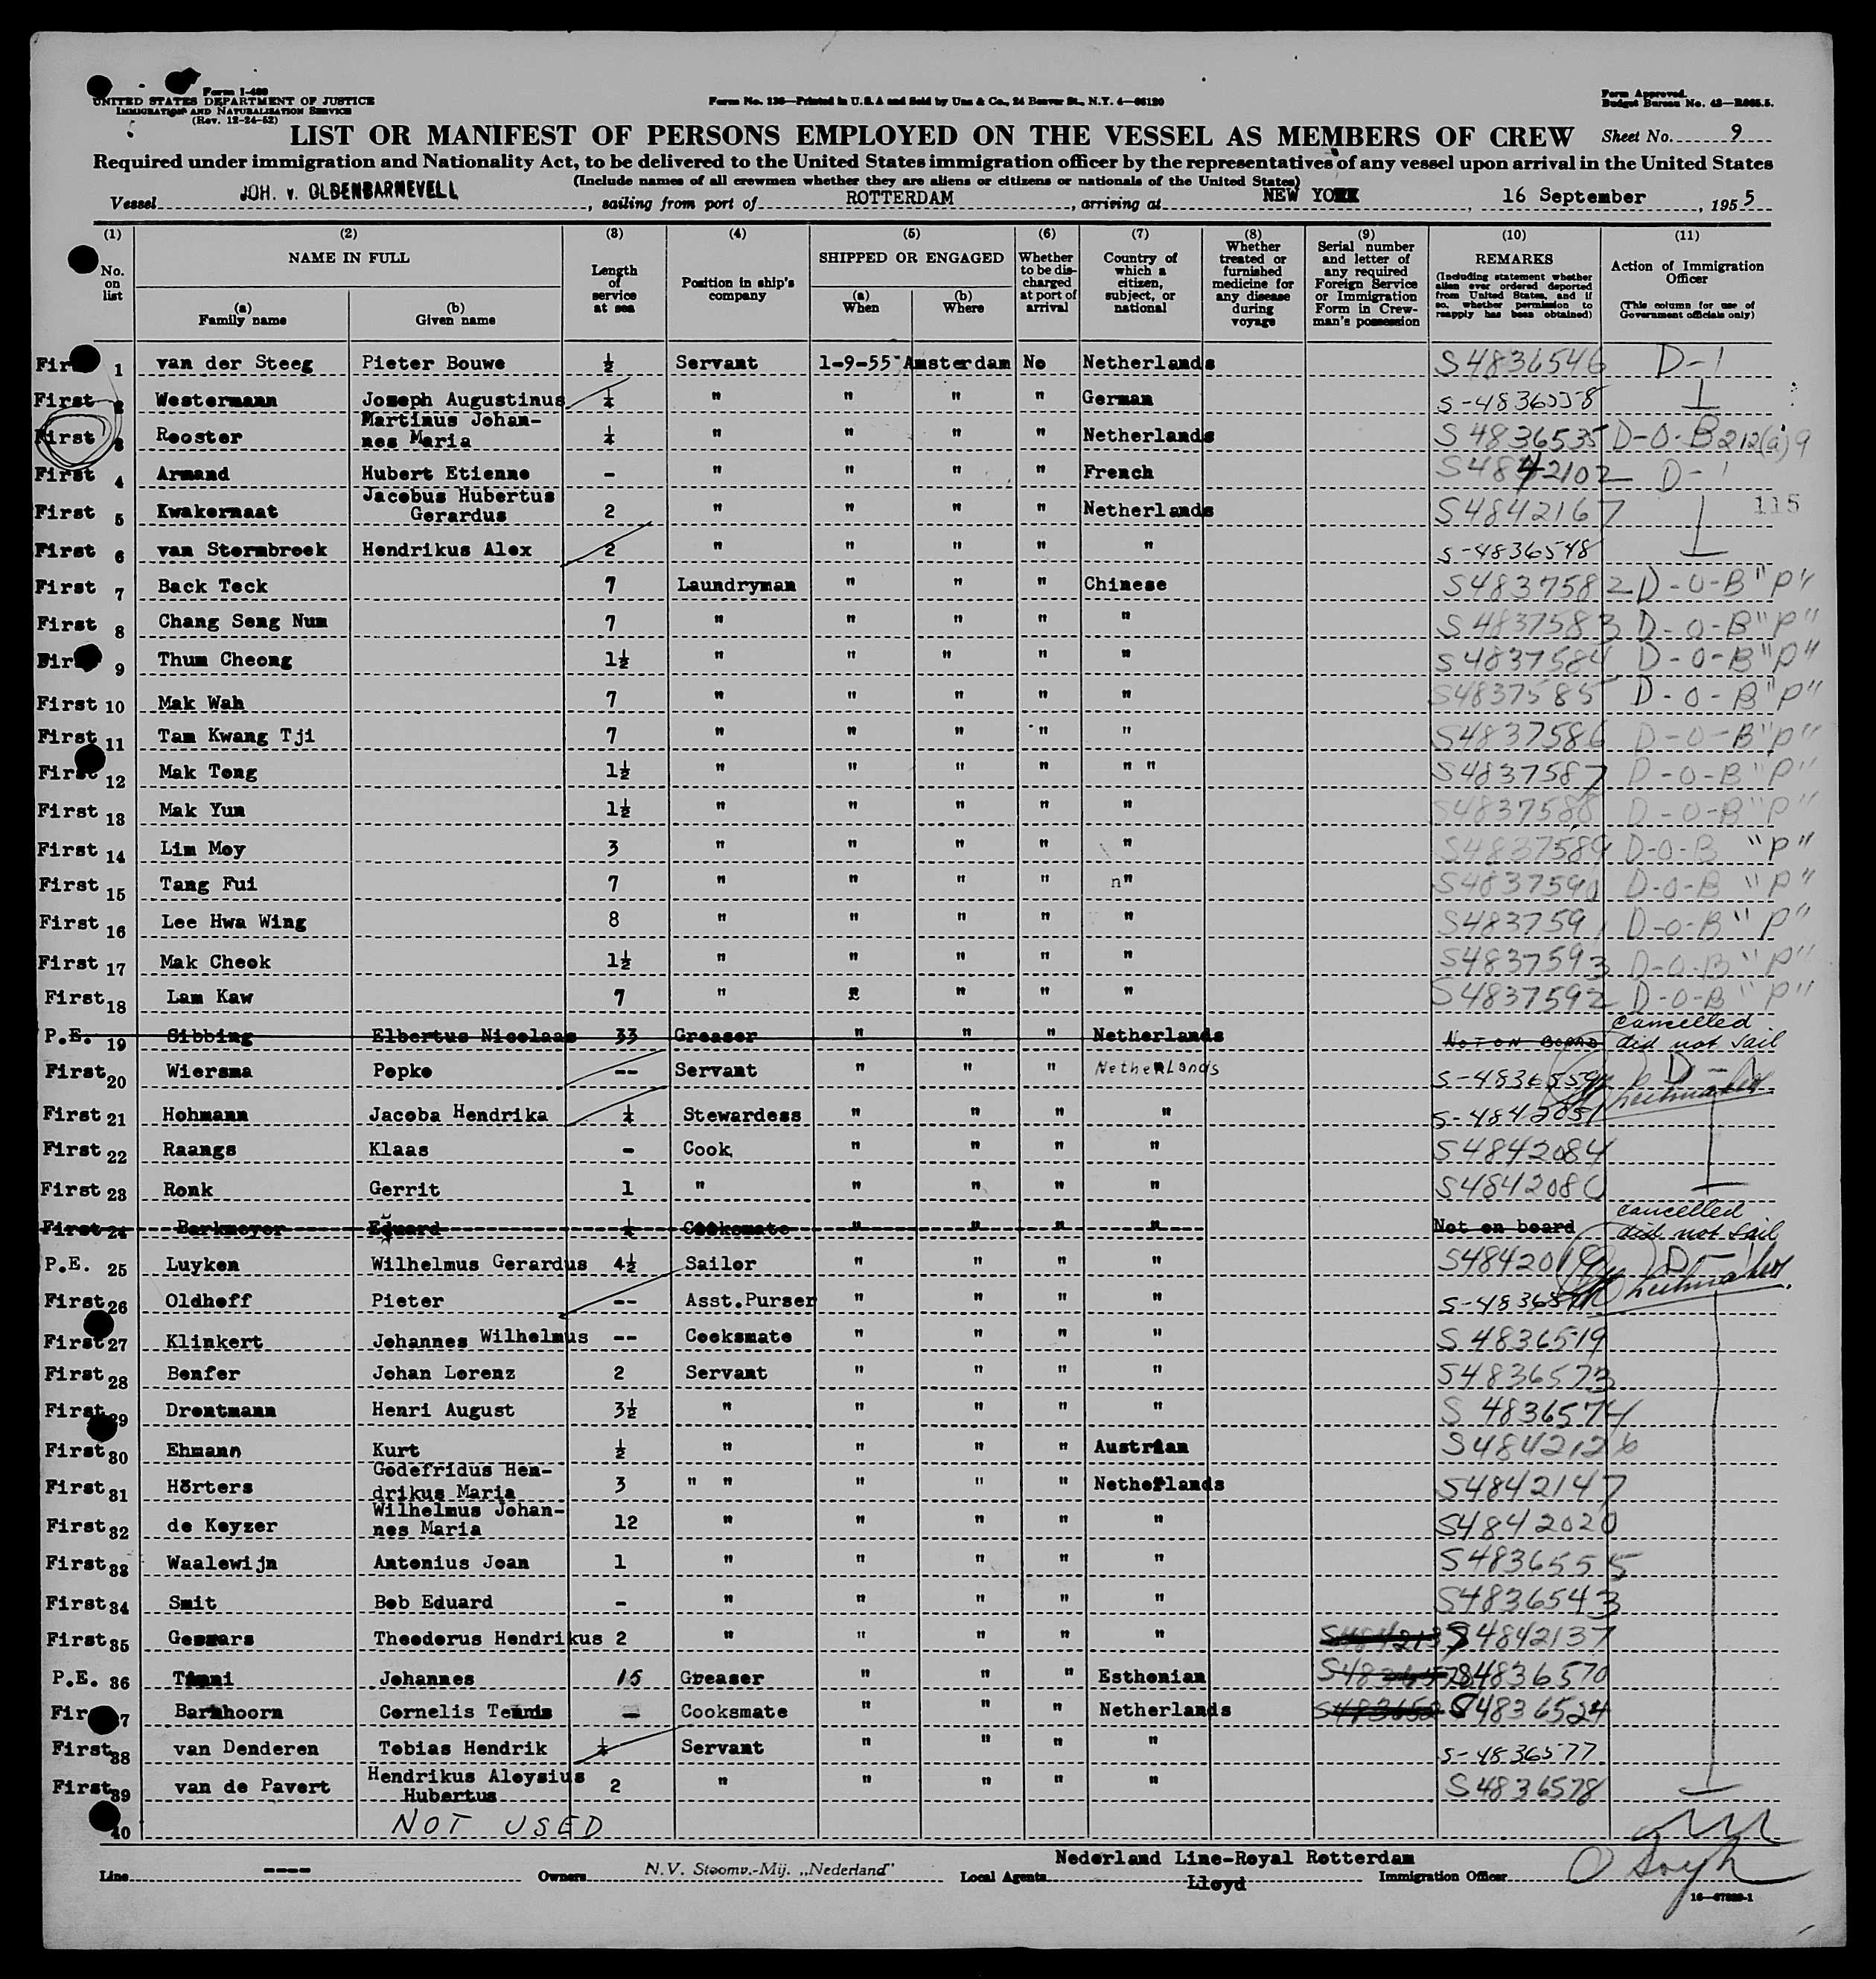 Form I-489
UNITED STATES DEPARTMENT OF JUSTICE
IMMIGRATION AND NATURALIZATION SERVICE
(Rev. 12-24-52)
Form No. 136—Printed in U.S.A and Sold by Unz & Co., 24 Beaver St., N.Y. 4—66120
Form Approved.
Budget Bureau No. 43—R065.5.
LIST OR MANIFEST OF PERSONS EMPLOYED ON THE VESSEL AS MEMBERS OF CREW Sheet No. 9
Required under immigration and Nationality Act, to be delivered to the United States immigration officer by the representatives of any vessel upon arrival in the United States
(Include names of all crewmen whether they are aliens or citizens or nationals of the United States)
Vessel JOH. v. OLDENBARNEVELL, sailing from port of ROTTERDAM, arriving at NEW YORK, 16 September, 1955
(1) (2) (3) (4) (5) (6) (7) (8) (9) (10) (11)
No. on list
NAME IN FULL
(a) Family name
(b) Given name
Length of service at sea
Position in ship's company
SHIPPED OR ENGAGED
(a) When
(b) Where
Whether to be discharged at port of arrival
Country of which a citizen, subject, or national
Whether treated or furnished medicine for any disease during voyage
Serial number and letter of any required Foreign Service or Immigration Form in Crewman's possession
REMARKS
(Including statement whether alien ever ordered deported from United States, and if so, whether permission to reapply has been obtained)
Action of Immigration Officer
(This column for use of Government officials only)
1 van der Steeg Pieter Bouwe ½ Servant 1-9-55 Amsterdam No Netherlands S4836546 D-1
First 2 Westermann Joseph Augustinus ¼ " " " " German S-4836558
First 3 Rooster Martinus Johan-nes Maria ¼ " " " " Netherlands S4836535 D-O-B 212(a)9
First 4 Armand Hubert Etienne - " " " " French S4842102 D-1
First 5 Kwakernaat Jacobus Hubertus Gerardus 2 " " " " Netherlands S4842167 115
First 6 van Stormbroek Hendrikus Alex 2 " " " " " S-4836548
First 7 Back Teck 7 Laundryman " " " Chinese S4837582 D-O-B "P"
First 8 Chang Seng Num 7 " " " " " S4837583 D-O-B "P"
9 Thum Cheong 1½ " " " " " S4837584 D-O-B "P"
First 10 Mak Wah 7 " " " " " S4837585 D-O-B "P"
First 11 Tam Kwang Tji 7 " " " " " S4837586 D-O-B "P"
First 12 Mak Tong 1½ " " " " " " S4837587 D-O-B "P"
First 13 Mak Yum 1½ " " " " " S4837588 D-O-B "P"
First 14 Lim Moy 3 " " " " " S4837589 D-O-B "P"
First 15 Tang Fui 7 " " " " " S4837590 D-O-B "P"
First 16 Lee Hwa Wing 8 " " " " " S4837591 D-O-B "P"
First 17 Mak Cheok 1½ " " " " " S4837593 D-O-B "P"
First 18 Lam Kaw 7 " " " " " S4837592 D-O-B "P"
P.E. 19 Sibbing Elbertus Nicolaas 33 Greaser " " " Netherlands NOT ON BOARD cancelled did not sail
First 20 Wiersma Popke -- Servant " " " Netherlands S-4836559 D-1
First 21 Hohmann Jacoba Hendrika ¼ Stewardess " " " " S-4842051
First 22 Raangs Klaas - Cook " " " " S4842084
First 23 Ronk Gerrit 1 " " " " " S4842086
First 24 Barkmeyer Eduard ¼ Cooksmate " " " " Not on board cancelled did not sail
P.E. 25 Luyken Wilhelmus Gerardus 4½ Sailor " " " " S4842019 D-1
First 26 Oldhoff Pieter -- Asst.Purser " " " "
First 27 Klinkert Johannes Wilhelmus -- Cooksmate " " " " S4836519
First 28 Benfer Johan Lorenz 2 Servant " " " " S4836573
First 29 Drentmann Henri August 3½ " " " " " S4836574
First 30 Ehmann Kurt ½ " " " " Austrian S4842126
First 31 Hörters Godefridus Hen-drikus Maria 3 " " " " " Netherlands S4842147
First 32 de Keyzer Wilhelmus Johan-nes Maria 12 " " " " " S4842020
First 33 Waalewijn Antonius Joan 1 " " " " " S4836555
First 34 Smit Bob Eduard - " " " " " S4836543
First 35 Theodorus Hendrikus 2 " " " " " S4842137
P.E. 36 Johannes 15 Greaser " " " Esthonian S4836570
37 Barnhoorn Cornelis Teunis -- Cooksmate " " " Netherlands S4836524
First 38 van Denderen Tobias Hendrik ¼ Servant " " " " S-4836577
First 39 van de Pavert Hendrikus Aloysius Hubertus 2 " " " " " S4836578
40 NOT USED
Line ---- Owners N.V. Stoomv.-Mij. „Nederland" Local Agents Nederland Line-Royal Rotterdam Lloyd Immigration Officer
16—67829-1